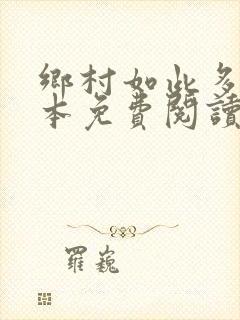 鄉村如此多
本免費閱讀
羅巍